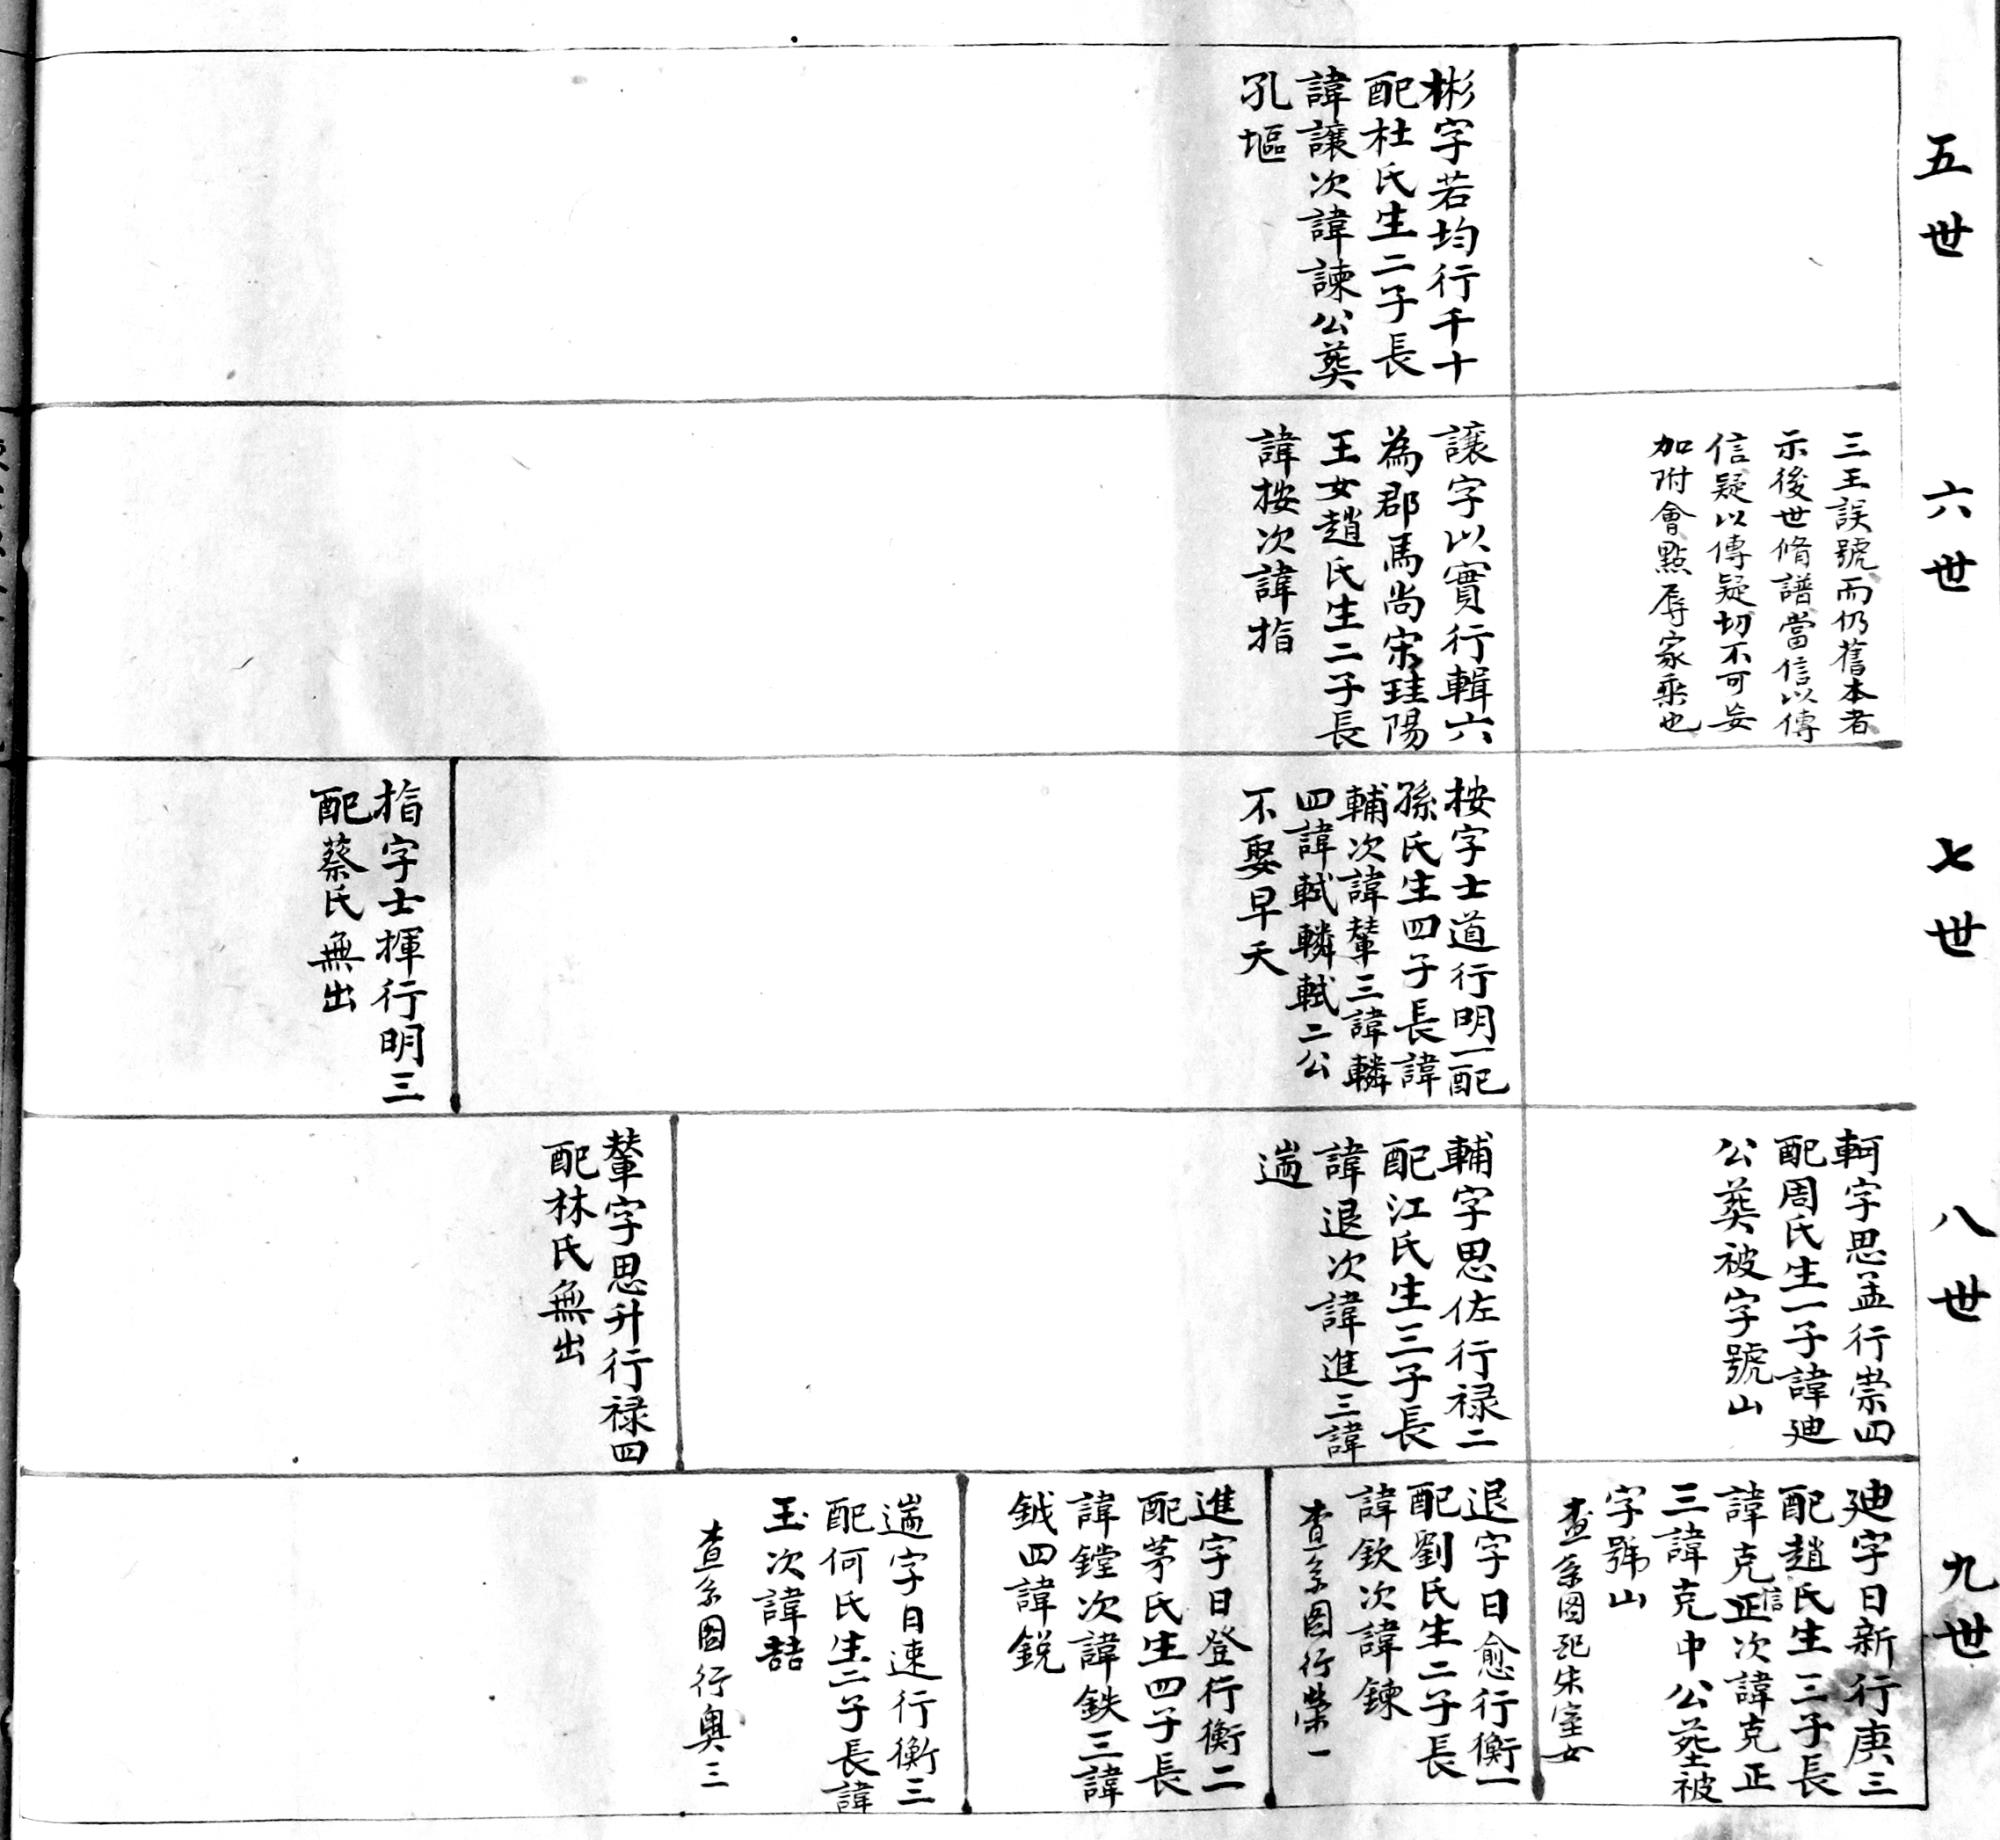 五世
彬字若均行千十
配杜氏生二子長
諱讓次諱諫公葬
孔堰
六世
三王誤號而仍舊本者
示後世脩譜當信以傳
信疑以傳疑切不可妄
加附會㸃辱家乘也
讓字以實行輯六
為郡馬尚宋珪陽
王女趙氏生二子長
諱按次諱指
七世
按字士道行明一配
孫氏生四子長諱
輔次諱輦三諱轔
四諱軾轔軾二公
不娶早夭
指字士揮行明三
配蔡氏無出
八世
軻字思孟行崇四
配周氏生一子諱廸
公葬被字號山
輔字思佐行禄二
配江氏生三子長
諱退次諱進三諱
遄
輦字思升行禄四
配林氏無出
九世
廸字日新行庚三
配趙氏生三子長
諱克正次諱克正
信
三諱克中公塟被
字號山
查系圖配朱室女
退字日愈行衡一
配劉氏生二子長
諱欽次諱鍊
查系圖行榮一
進字日登行衡二
配茅氏生四子長
諱鏜次諱鉄三諱
鉞四諱鋭
遄字日速行衡三
配何氏生二子長諱
玉次諱喆
查系圖行奥三